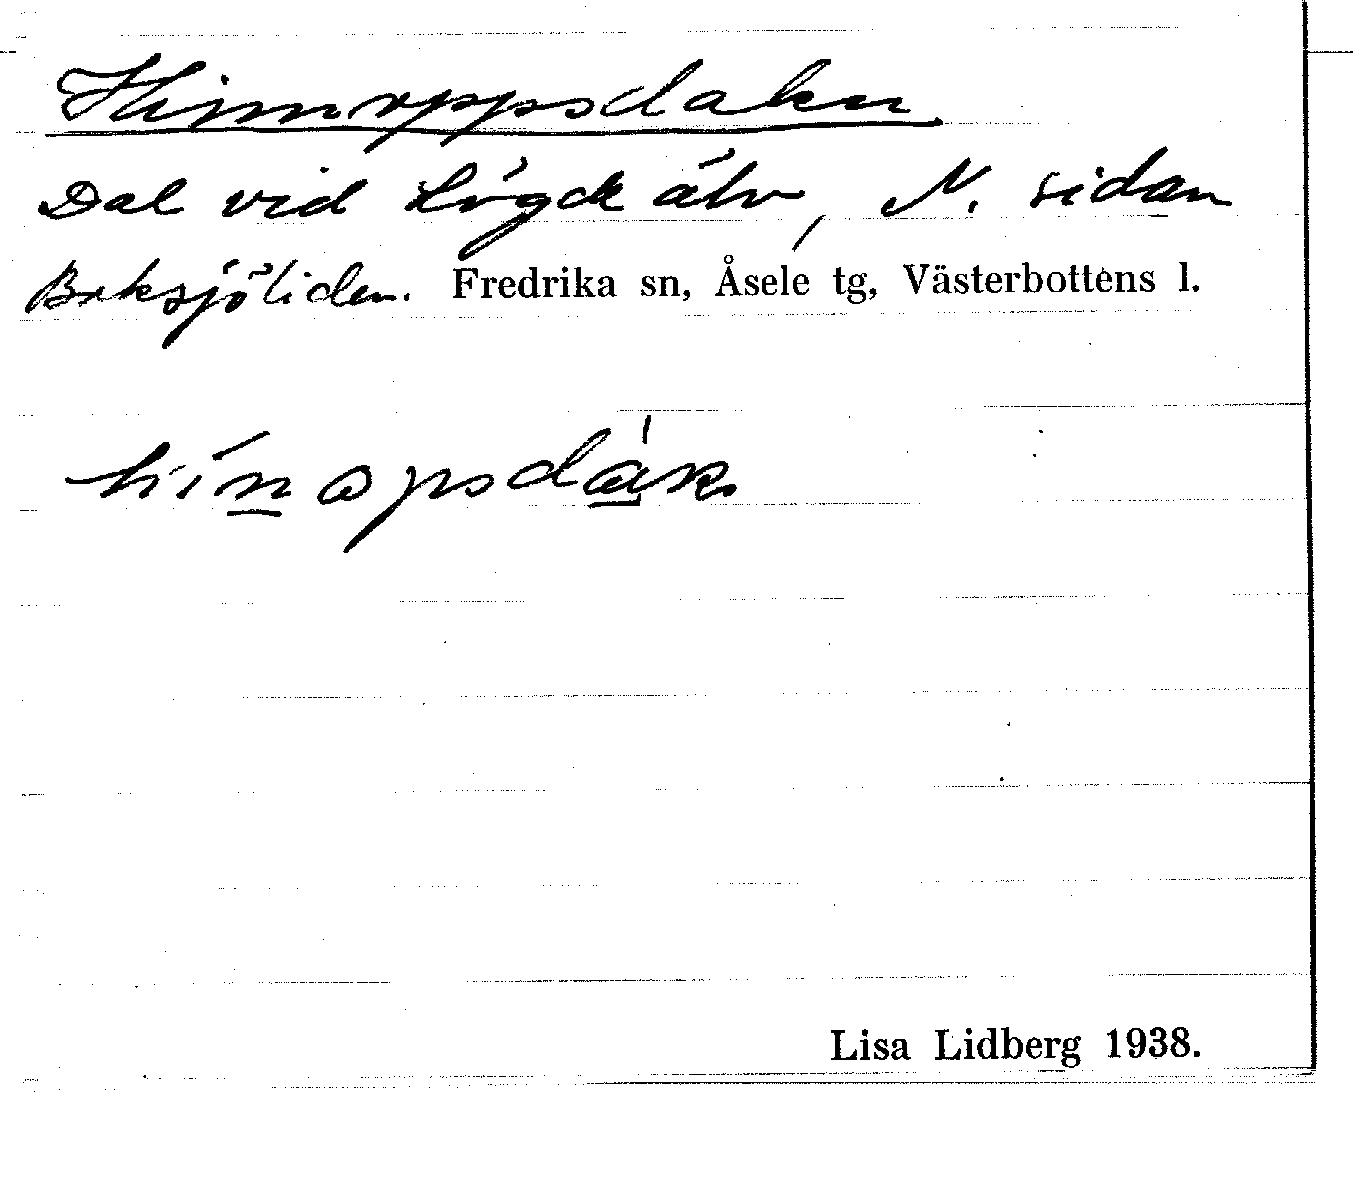 Hinnoppsdaken
Dal vid Lögde älv, N. sidan
Baksjöliden. Fredrika sn, Åsele tg, Västerbottens l.
Lisa Lidberg 1938.